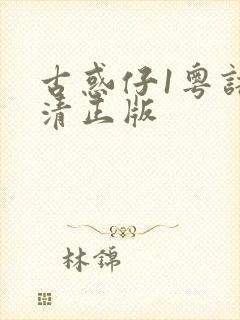 古惑仔1粤语
清正版
林锦